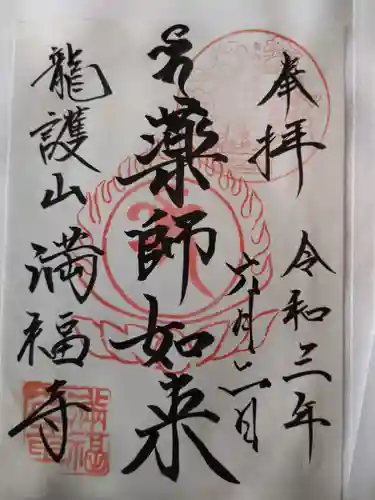 奉拝
令和三年
六月二日
薬師如来
龍護山
満福寺